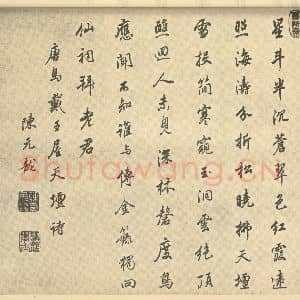 星斗半沉蒼翠色紅霞遠
照海濤分折松曉拂天壇
雪投簡寒窺玉洞雲絶頂
醮回人未見深林磬度鳥
應聞不知誰與傳金籙獨向
仙祠拜老君
唐馬戴玉屋天壇詩
陳元龍
Shufawang.cn